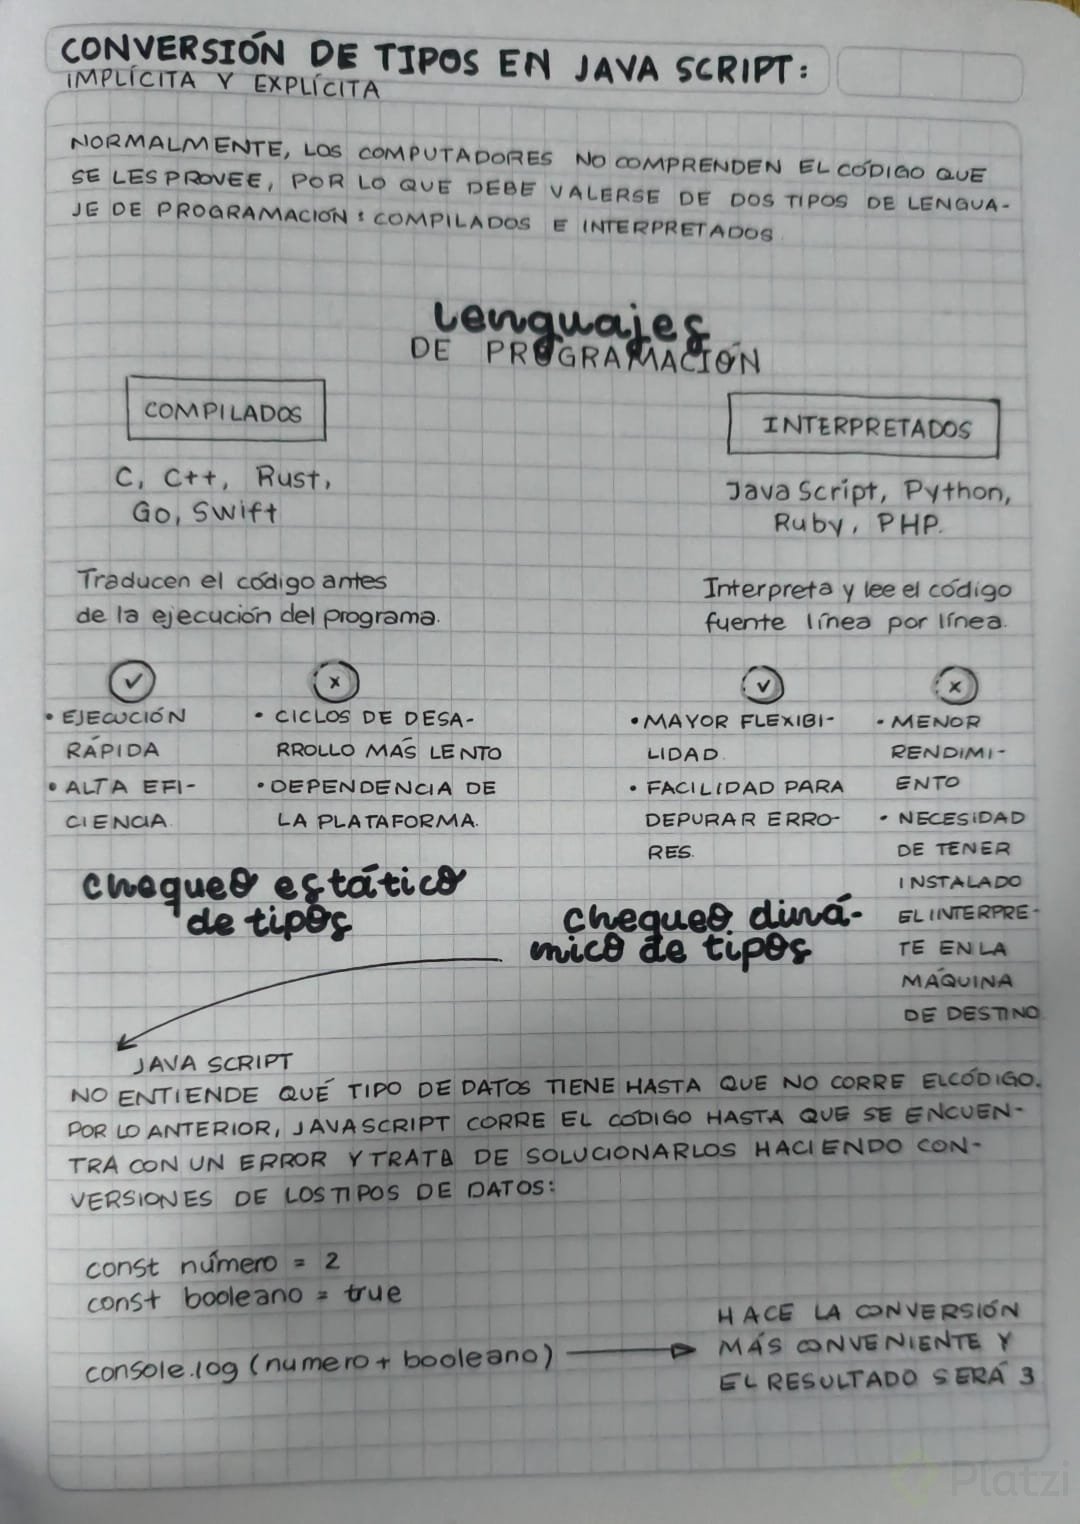 CONVERSIÓN DE TIPOS EN JAVA SCRIPT:
IMPLÍCITA Y EXPLÍCITA
NORMALMENTE, LOS COMPUTADORES NO COMPRENDEN EL CÓDIGO QUE
SE LES PROVEE, POR LO QUE DEBE VALERSE DE DOS TIPOS DE LENGUA-
JE DE PROGRAMACIÓN: COMPILADOS E INTERPRETADOS
Lenguajes
DE PROGRAMACIÓN
COMPILADOS
C, C++, Rust,
Go, Swift
Traducen el código antes
de la ejecución del programa.
✓
• EJECUCIÓN
RÁPIDA
• ALTA EFI-
CIENCIA
x
• CICLOS DE DESA-
RROLLO MÁS LENTO
• DEPENDENCIA DE
LA PLATAFORMA.
chequeo estático
de tipos
INTERPRETADOS
Java Script, Python,
Ruby, PHP.
Interpreta y lee el código
fuente línea por línea.
✓
• MAYOR FLEXIBI-
LIDAD.
• FACILIDAD PARA
DEPURAR ERRO-
RES.
x
• MENOR
RENDIMI-
ENTO
• NECESIDAD
DE TENER
INSTALADO
EL INTERPRE-
TE EN LA
MÁQUINA
DE DESTINO
chequeo diná-
mico de tipos
JAVA SCRIPT
NO ENTIENDE QUÉ TIPO DE DATOS TIENE HASTA QUE NO CORRE EL CÓDIGO.
POR LO ANTERIOR, JAVASCRIPT CORRE EL CÓDIGO HASTA QUE SE ENCUEN-
TRA CON UN ERROR Y TRATA DE SOLUCIONARLOS HACIENDO CON-
VERSIONES DE LOS TIPOS DE DATOS:
const número = 2
const booleano = true
console.log (numero + booleano)
HACE LA CONVERSIÓN
MÁS CONVENIENTE Y
EL RESULTADO SERÁ 3
Platzi